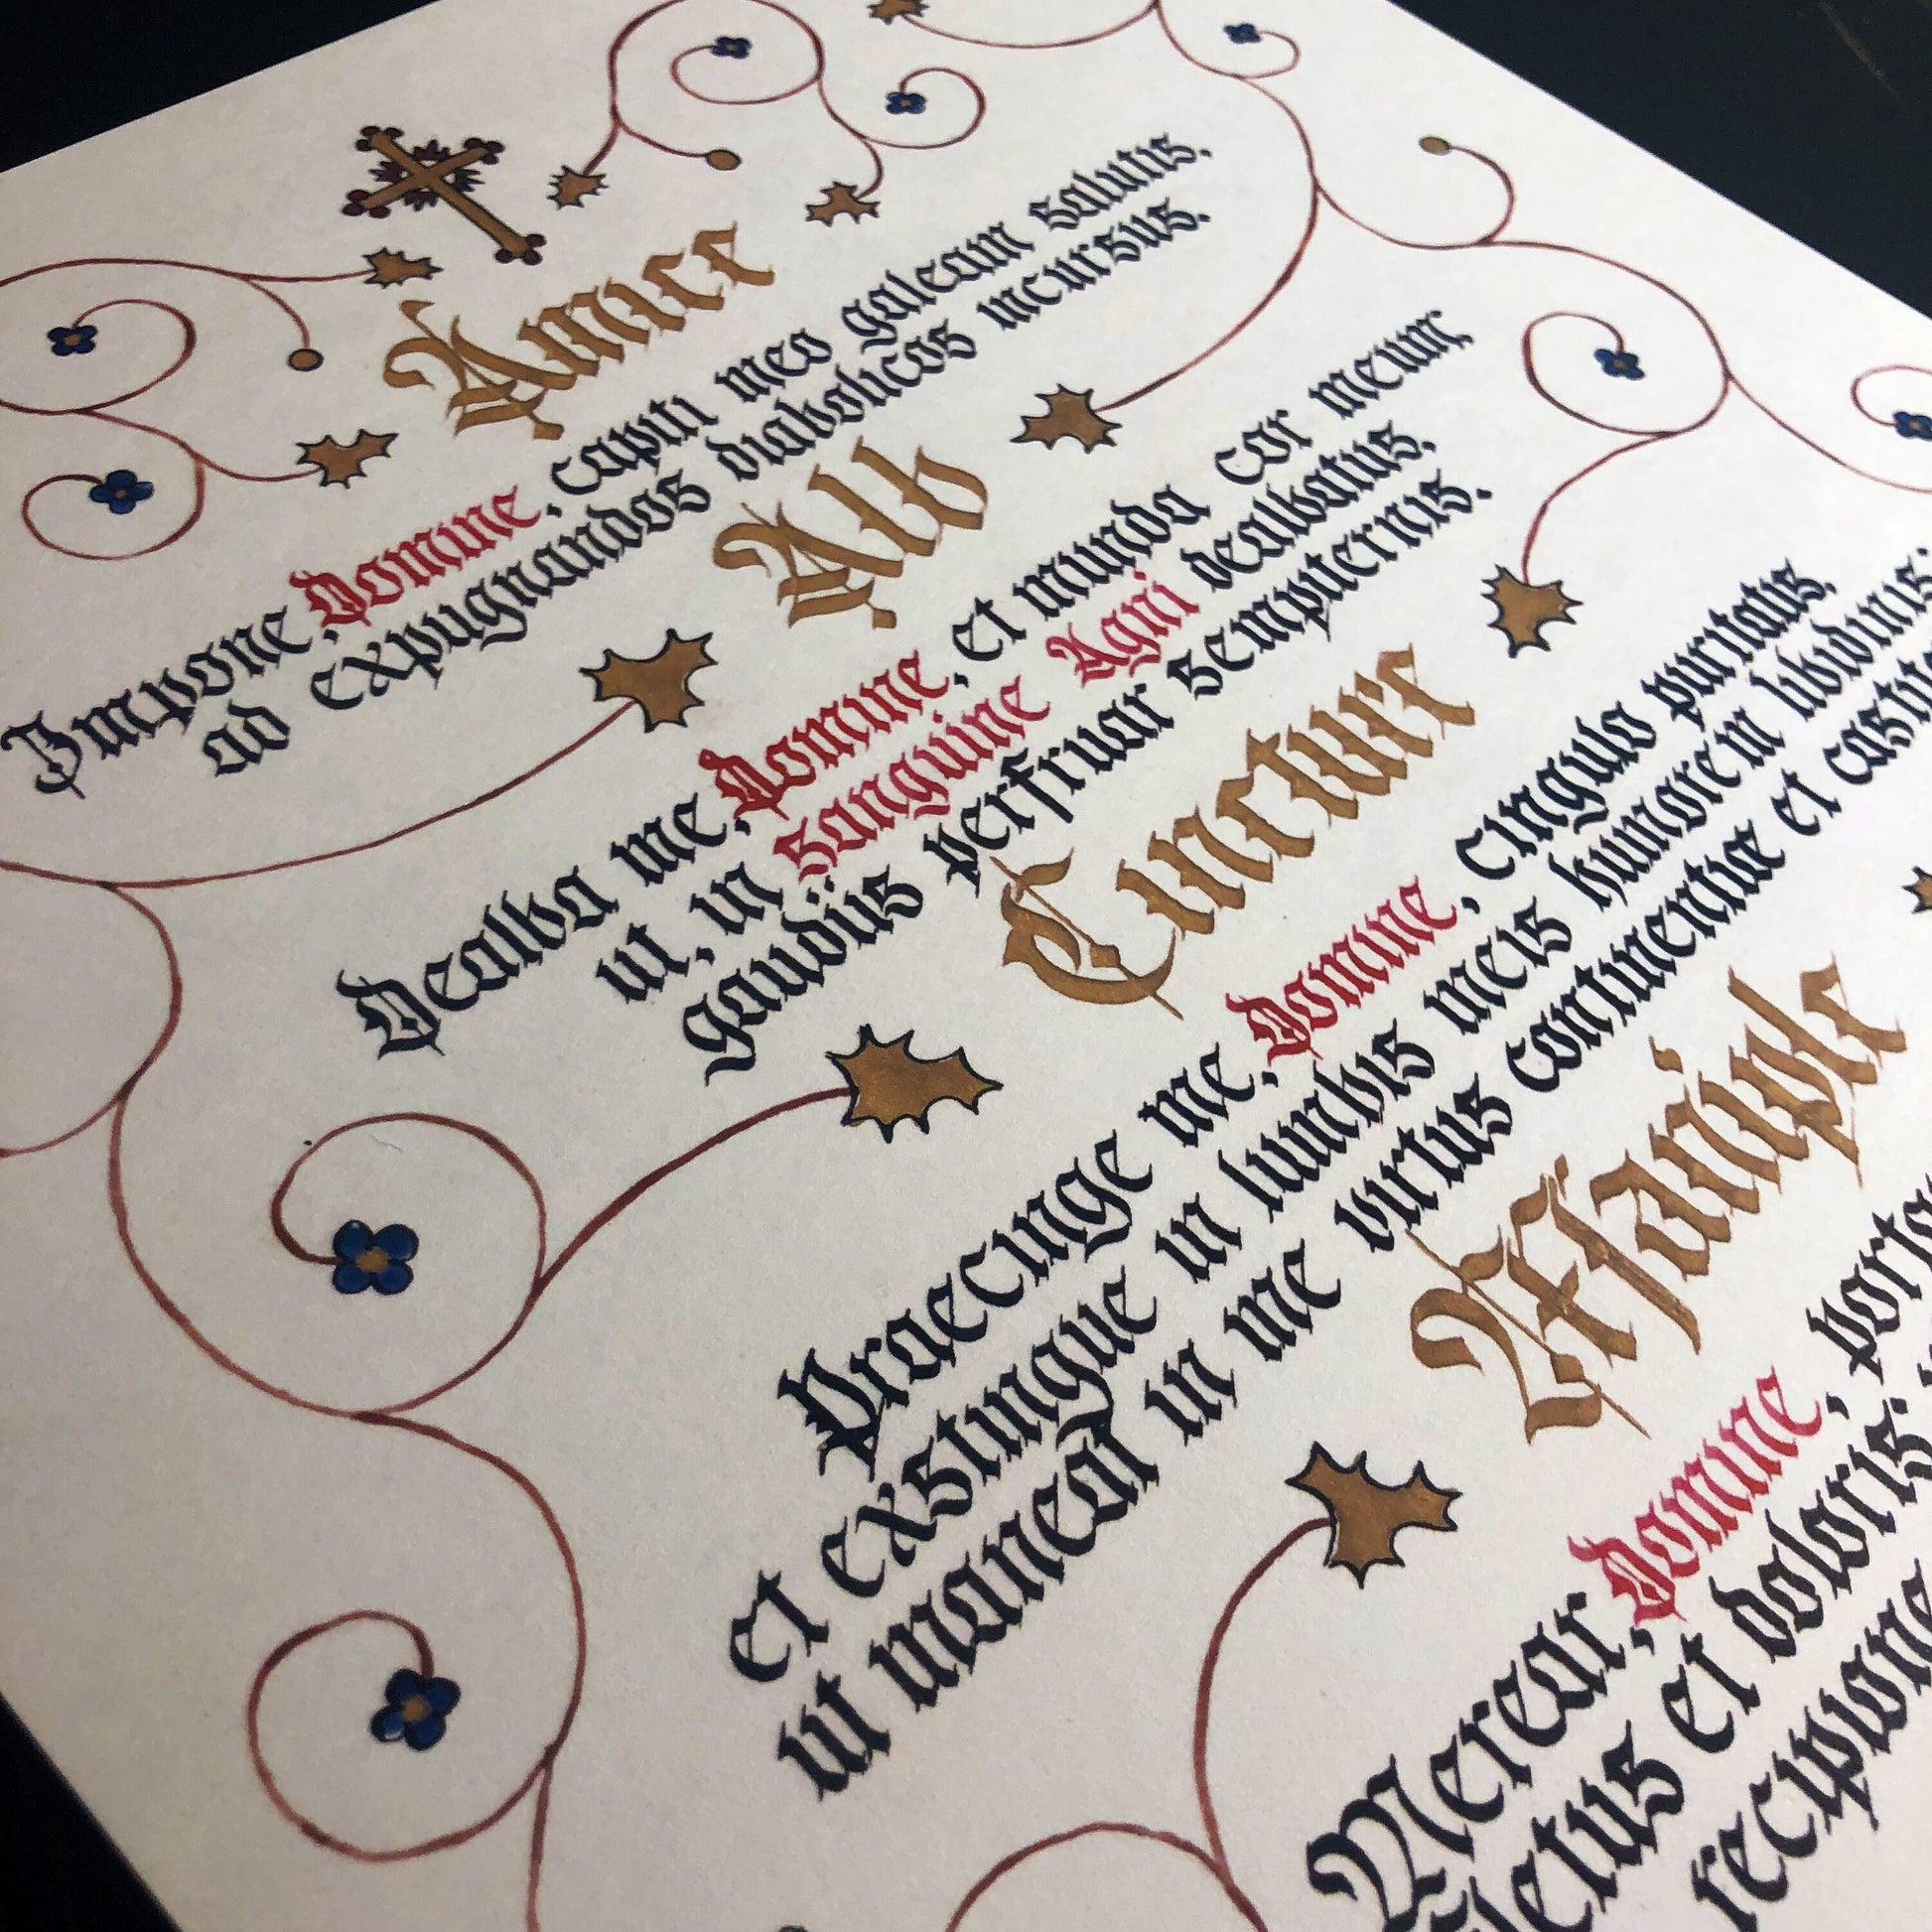 Amice
Impone, Domine, capiti meo galeam salutis,
ad expugnandos diabolicos incursus.
Alb
Dealba me, Domine, et munda cor meum;
ut, in Sanguine Agni dealbatus,
gaudiis perfruar sempiternis.
Cincture
Praecinge me, Domine, cingulo puritatis,
et exstingue in lumbis meis humorem libidinis;
ut maneat in me virtus continentiæ et
Maniple
Merear, Domine,
fletus et doloris:
recipiam